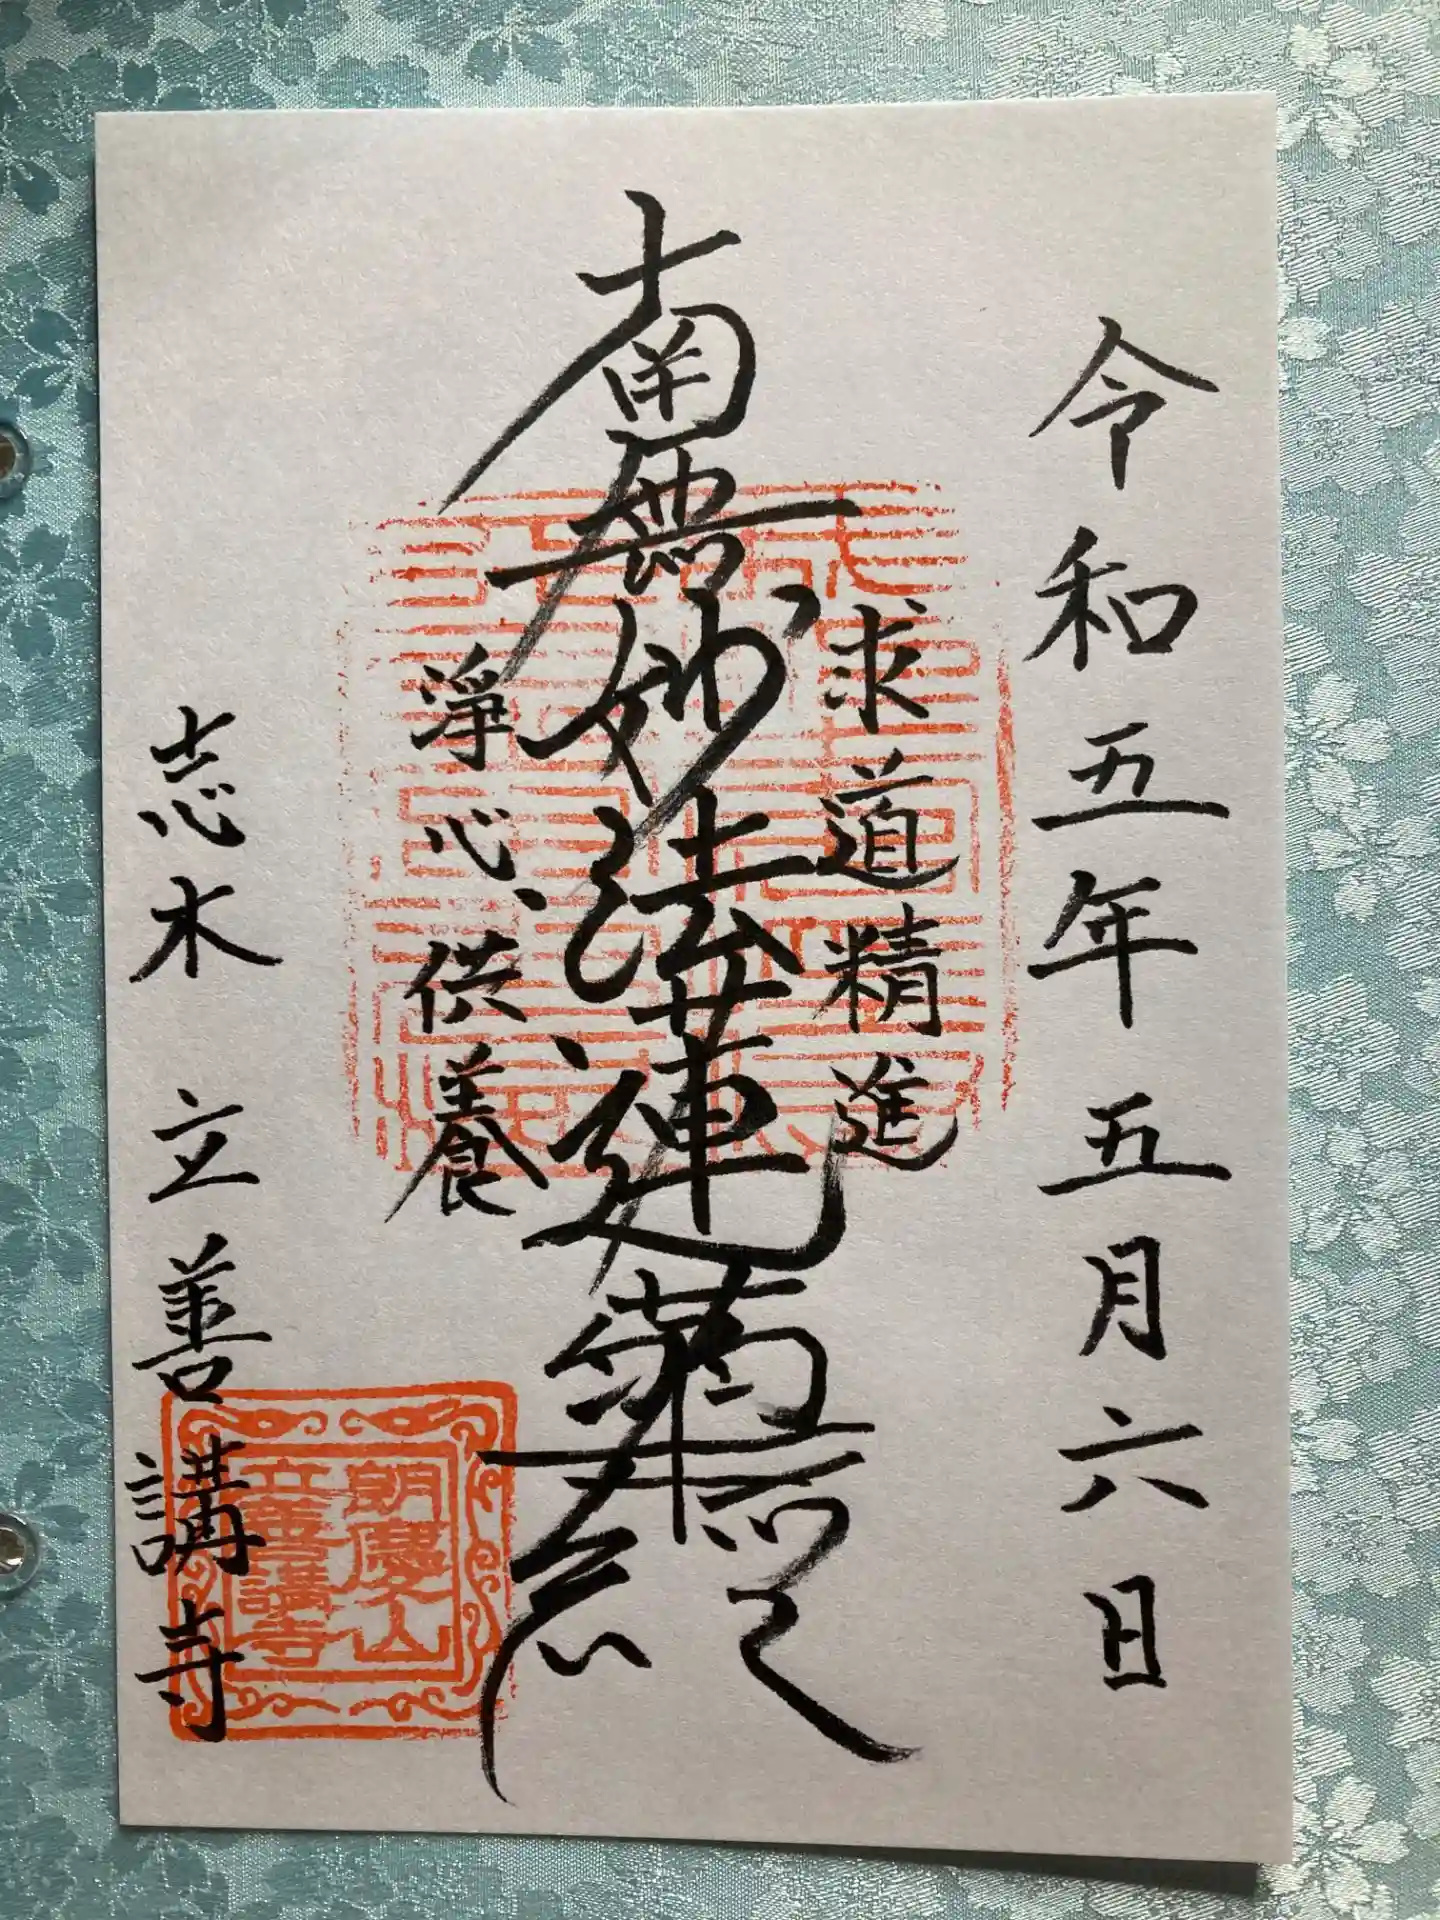 令和五年五月六日
求道精進
南無妙法蓮華経
浄心供養
志木 立善講寺
朗慶山
立善講寺